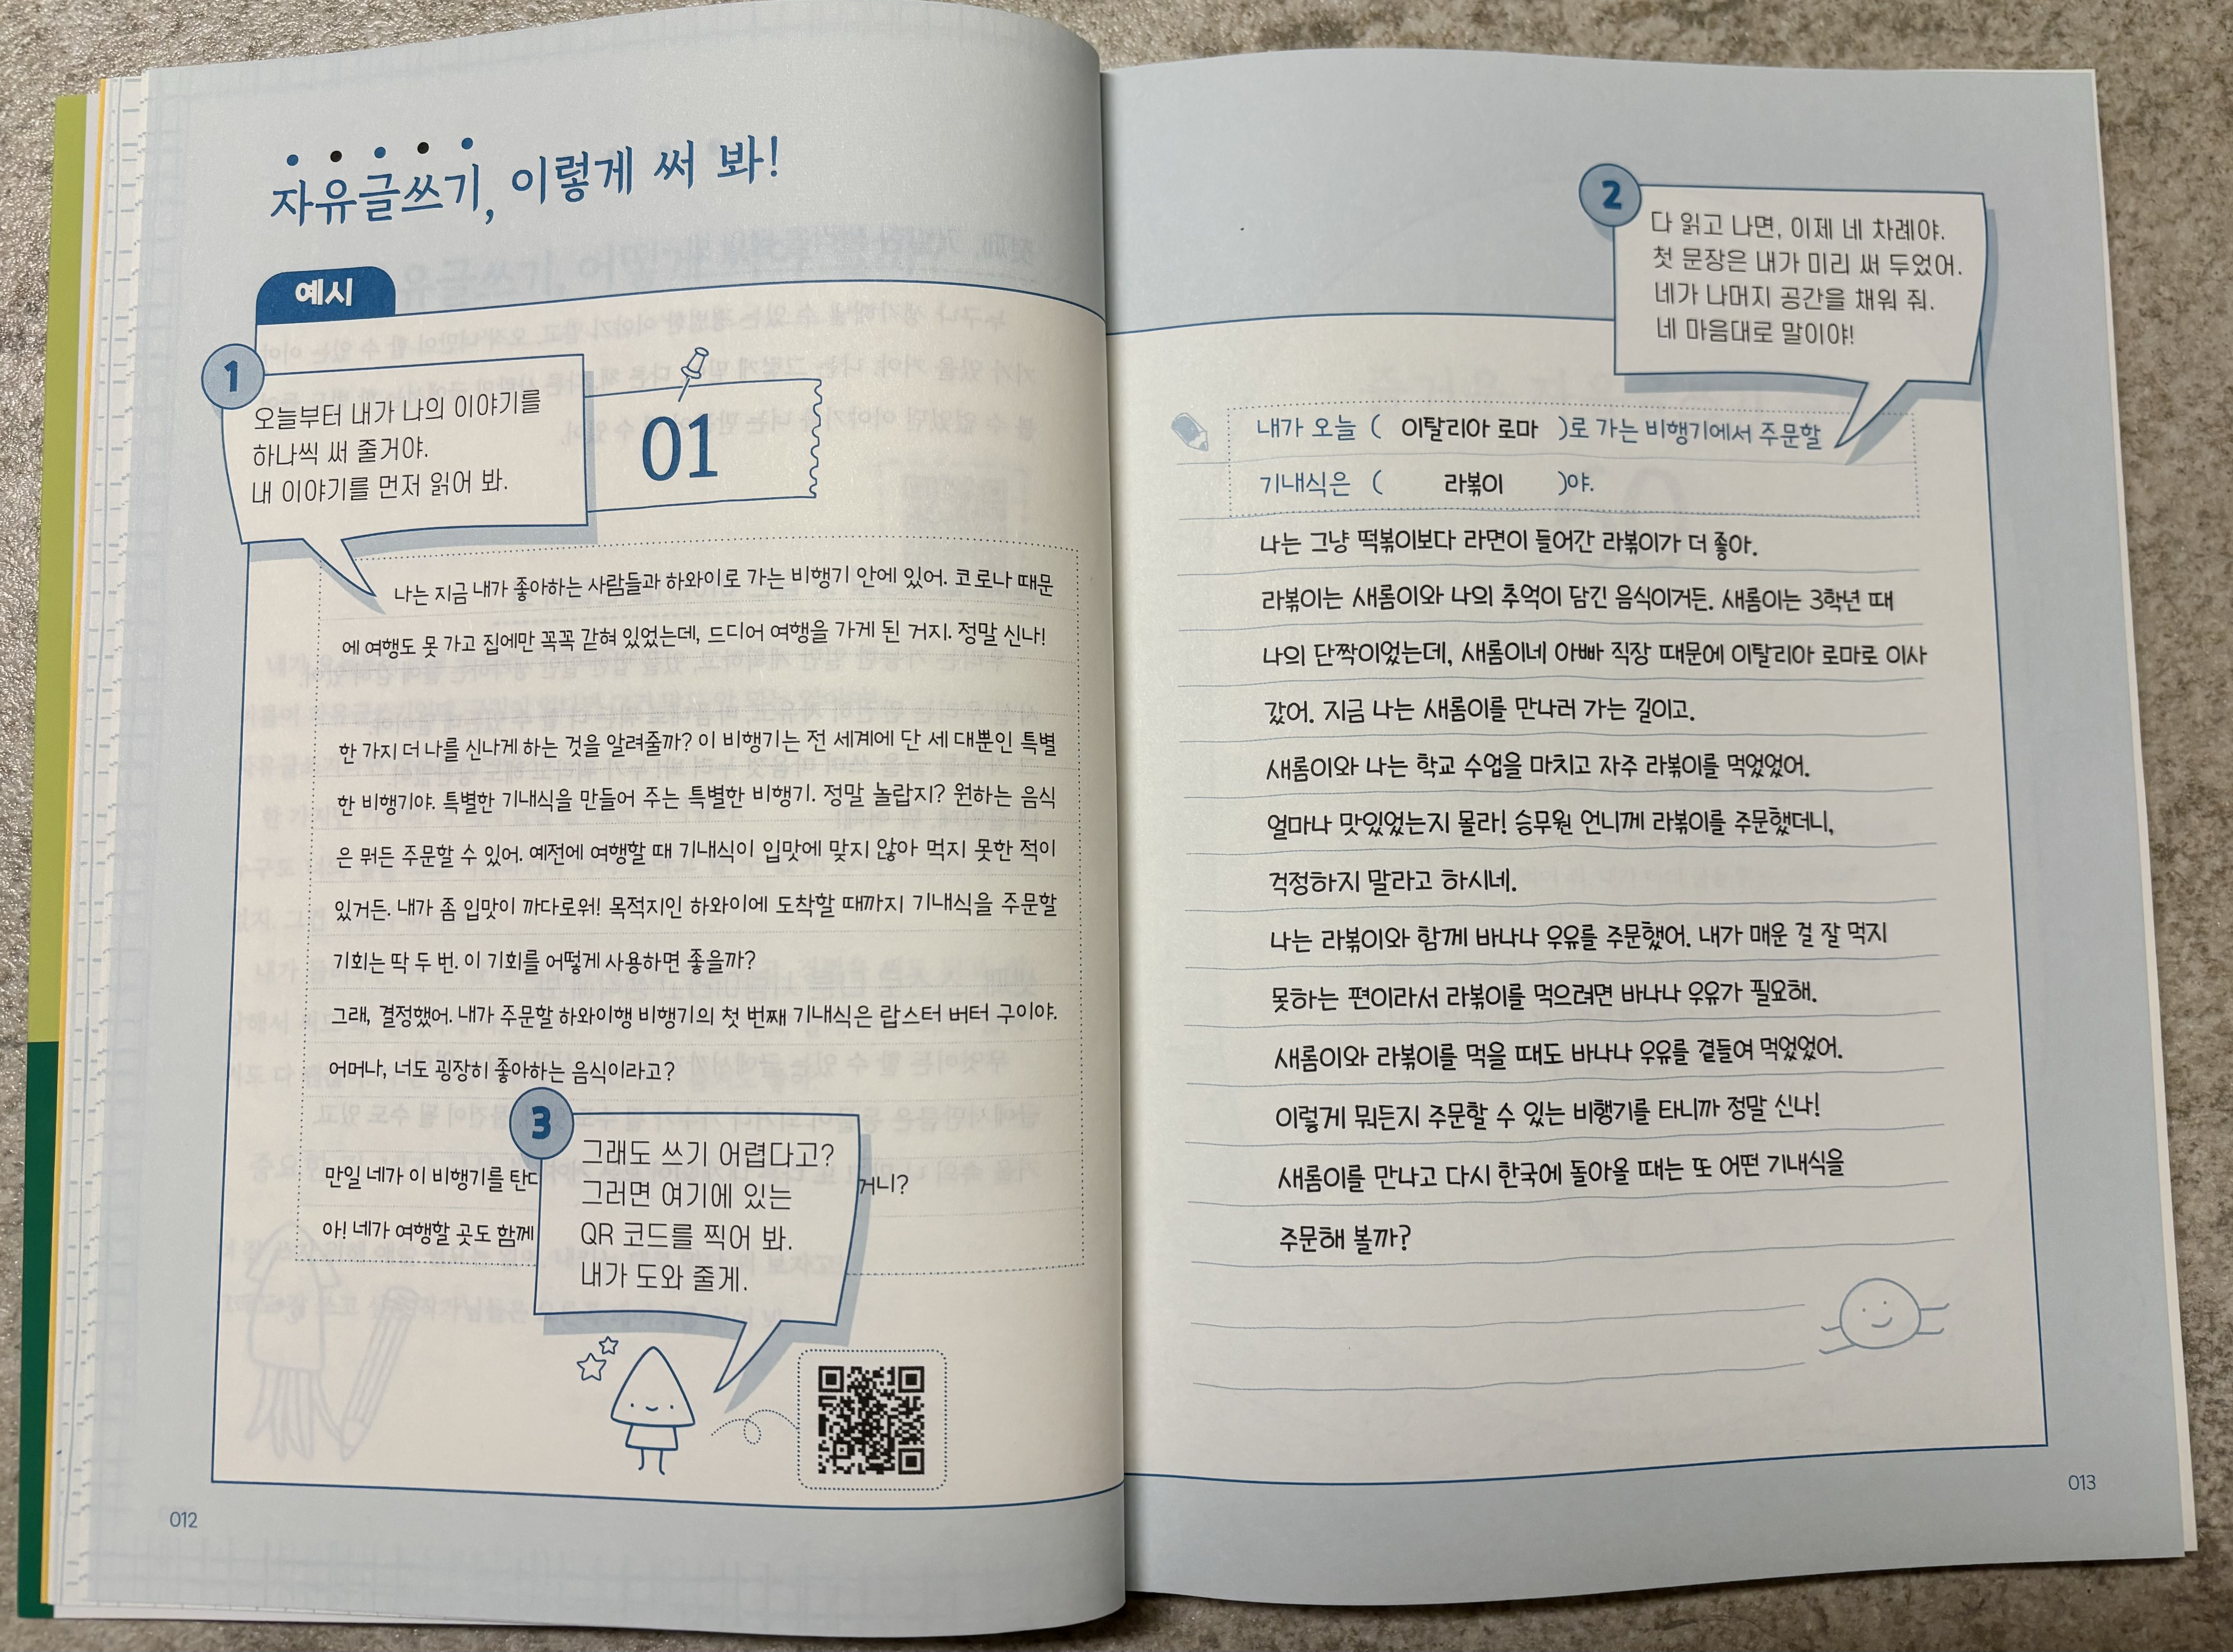 자유글쓰기, 이렇게 써 봐!
예시
1
오늘부터 내가 나의 이야기를
하나씩 써 줄거야.
내 이야기를 먼저 읽어 봐.
01
나는 지금 내가 좋아하는 사람들과 하와이로 가는 비행기 안에 있어. 코로나 때문
에 여행도 못 가고 집에만 꼭꼭 갇혀 있었는데, 드디어 여행을 가게 된 거지. 정말 신나!
한 가지 더 나를 신나게 하는 것을 알려줄까? 이 비행기는 전 세계에 단 세 대뿐인 특별
한 비행기야. 특별한 기내식을 만들어 주는 특별한 비행기. 정말 놀랍지? 원하는 음식
은 뭐든 주문할 수 있어. 예전에 여행할 때 기내식이 입맛에 맞지 않아 먹지 못한 적이
있거든. 내가 좀 입맛이 까다로워! 목적지인 하와이에 도착할 때까지 기내식을 주문할
기회는 딱 두 번. 이 기회를 어떻게 사용하면 좋을까?
그래, 결정했어. 내가 주문할 하와이행 비행기의 첫 번째 기내식은 랍스터 버터 구이야.
어머나, 너도 굉장히 좋아하는 음식이라고?
만일 네가 이 비행기를 탄다 거니?
아! 네가 여행할 곳도 함께
3
그래도 쓰기 어렵다고?
그러면 여기에 있는
QR 코드를 찍어 봐.
내가 도와 줄게.
012
2
다 읽고 나면, 이제 네 차례야.
첫 문장은 내가 미리 써 두었어.
네가 나머지 공간을 채워 줘.
네 마음대로 말이야!
내가 오늘 ( 이탈리아 로마 )로 가는 비행기에서 주문할
기내식은 ( 라볶이 )야.
나는 그냥 떡볶이보다 라면이 들어간 라볶이가 더 좋아.
라볶이는 새롬이와 나의 추억이 담긴 음식이거든. 새롬이는 3학년 때
나의 단짝이었는데, 새롬이네 아빠 직장 때문에 이탈리아 로마로 이사
갔어. 지금 나는 새롬이를 만나러 가는 길이고.
새롬이와 나는 학교 수업을 마치고 자주 라볶이를 먹었었어.
얼마나 맛있었는지 몰라! 승무원 언니께 라볶이를 주문했더니,
걱정하지 말라고 하시네.
나는 라볶이와 함께 바나나 우유를 주문했어. 내가 매운 걸 잘 먹지
못하는 편이라서 라볶이를 먹으려면 바나나 우유가 필요해.
새롬이와 라볶이를 먹을 때도 바나나 우유를 곁들여 먹었었어.
이렇게 뭐든지 주문할 수 있는 비행기를 타니까 정말 신나!
새롬이를 만나고 다시 한국에 돌아올 때는 또 어떤 기내식을
주문해 볼까?
013